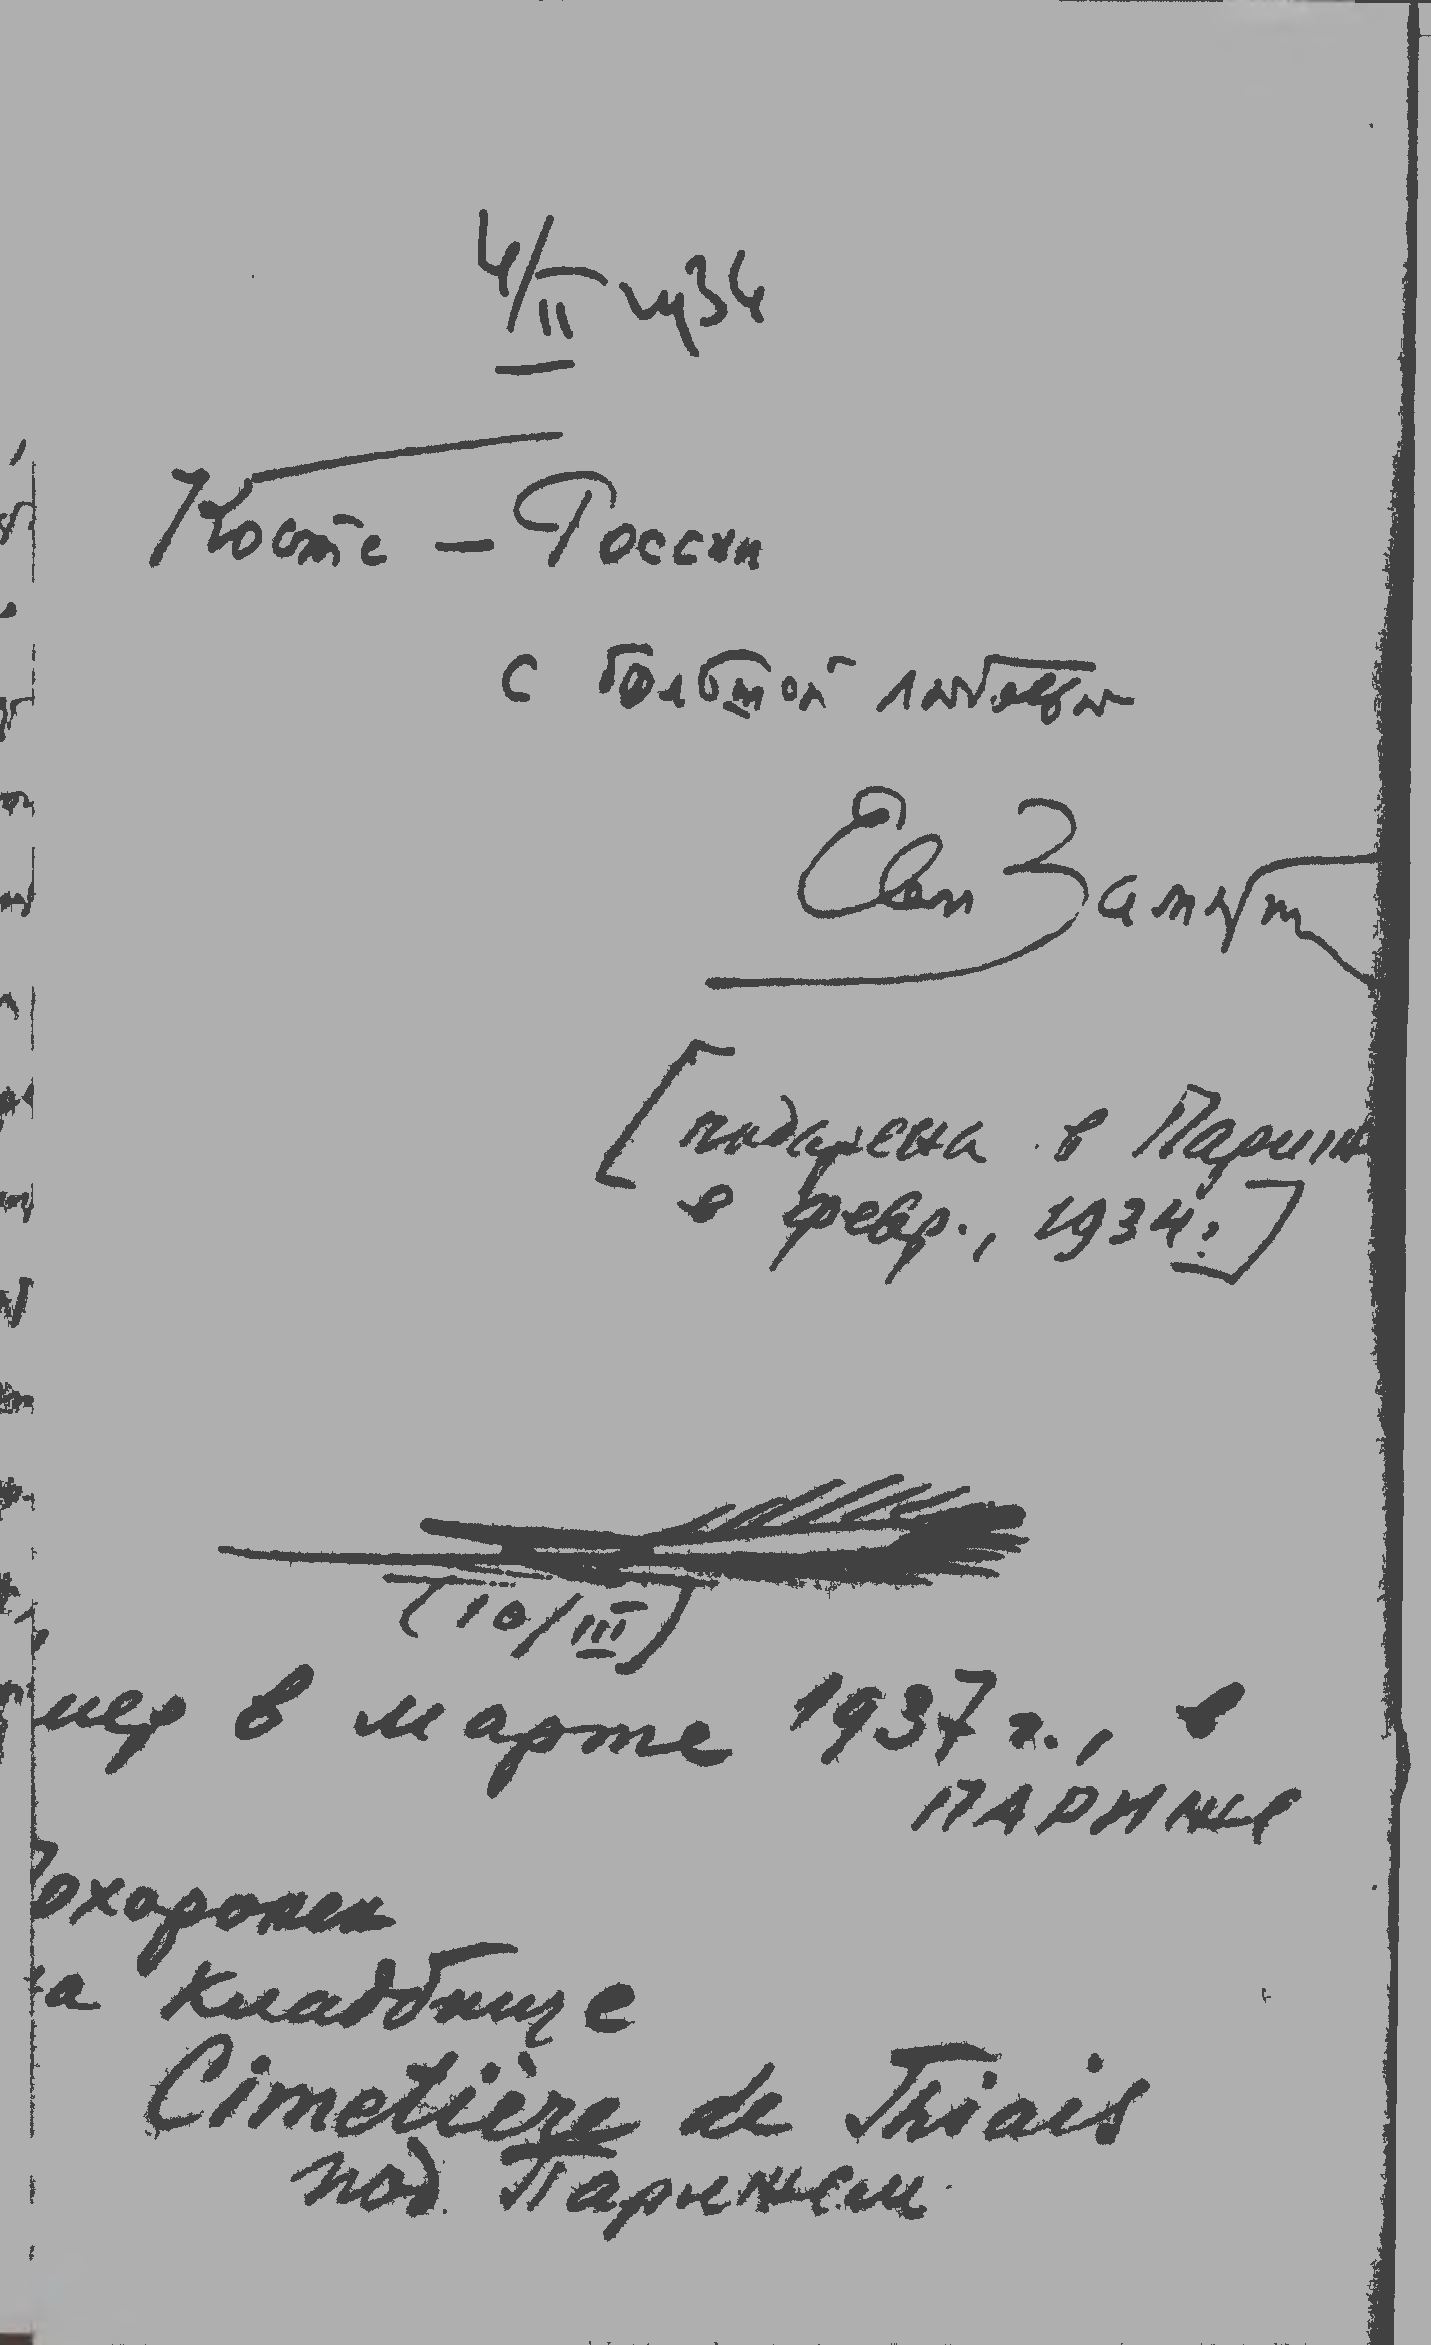 4/II 1934
Косте - России
с большой любовью
Евг Замят
[подарена в Париж
в февр., 1934.]
(10/III)
мер в марте 1937 г., в
ПАРИЖЕ
Похоронен
на кладбище
Cimetière de Thiais
под Парижем